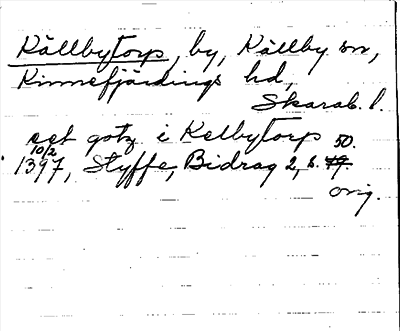 Källbytorp, by, Källby sn,
Kinnefjärdings hd,
Skarab. l.
eet gotz i Kelbytorp 50.
10/2
1397, Styffe, Bidrag 2, s. 49.
orig.